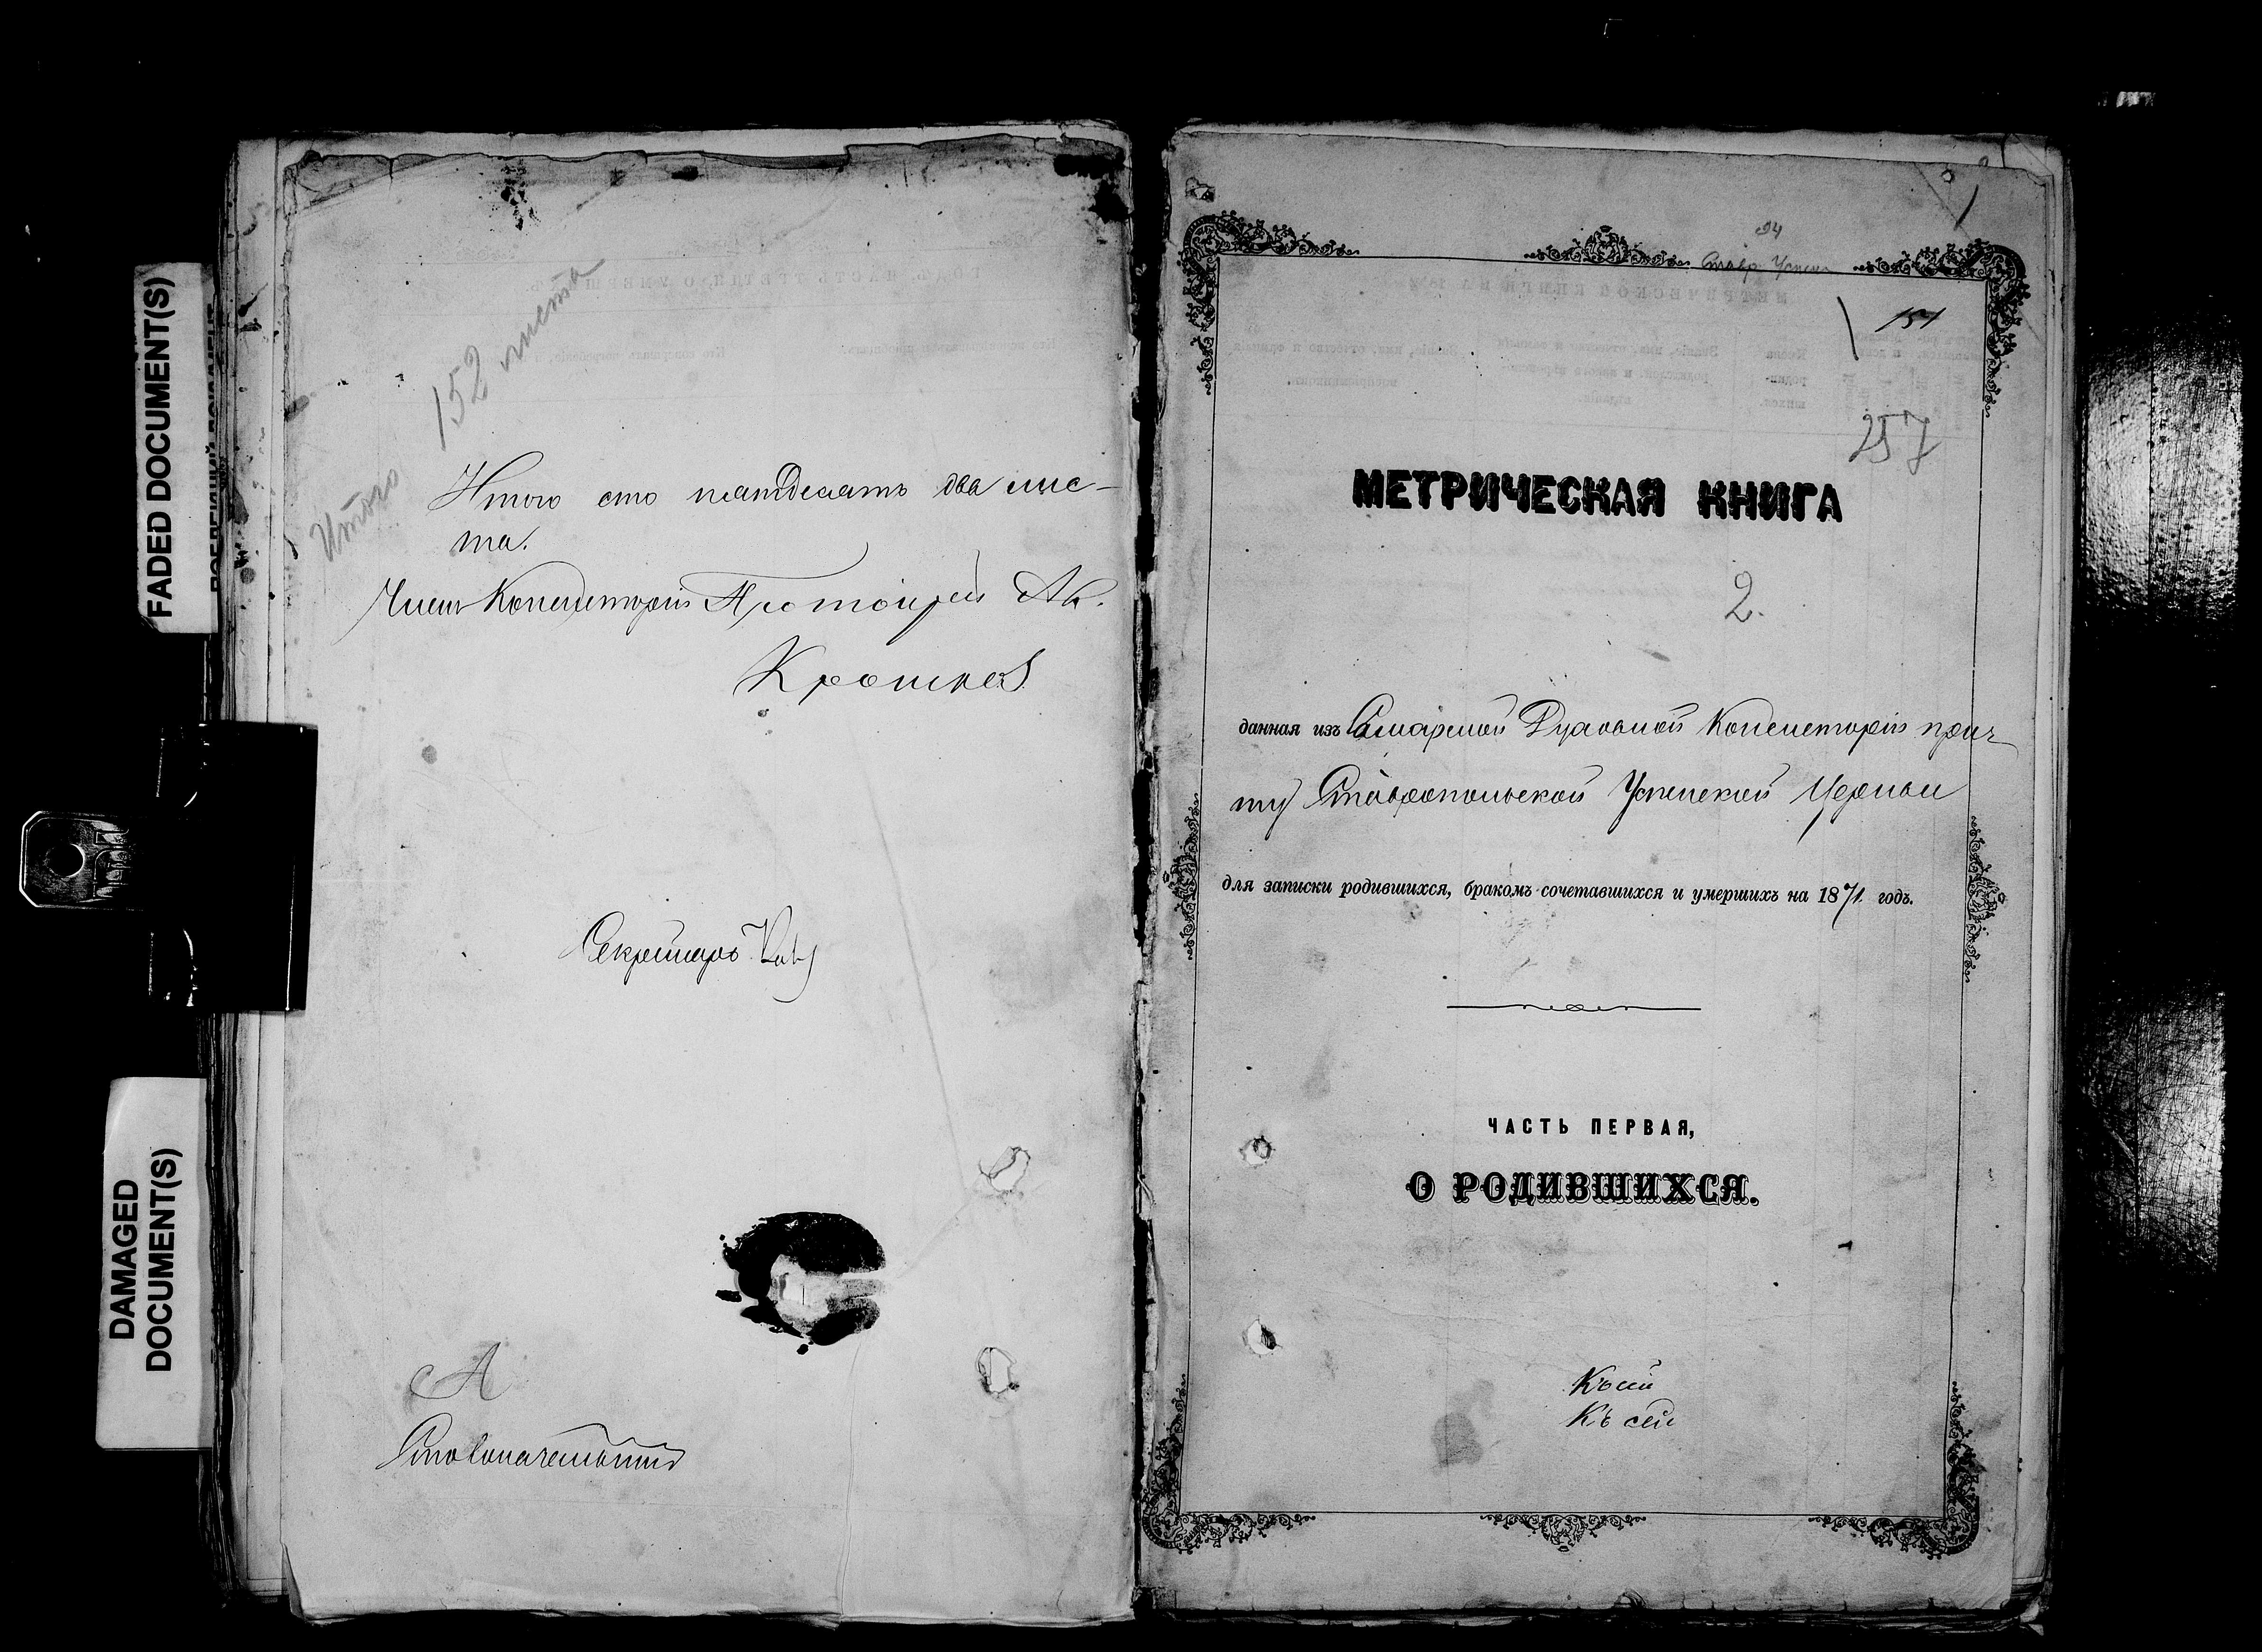 FADED DOCUMENT(S)
DAMAGED
DOCUMENT(S)
Итого 152 листа
Итого сто пятдесятъ два лис-
та.
Членъ Консисторіи Протоіерей Ал.
Секретарь
Столоначальникъ
1
94
Ставр. Успен.
151
257
МЕТРИЧЕСКАЯ КНИГА
2.
данная изъ Самарской Духовной Консисторіи прич-
ту Ставропольской Успенской Церкви
для записки родившихся, бракомъ сочетавшихся и умершихъ на 1871 годъ.
ЧАСТЬ ПЕРВАЯ,
О РОДИВШИХСЯ.
Къ сей
Къ сей